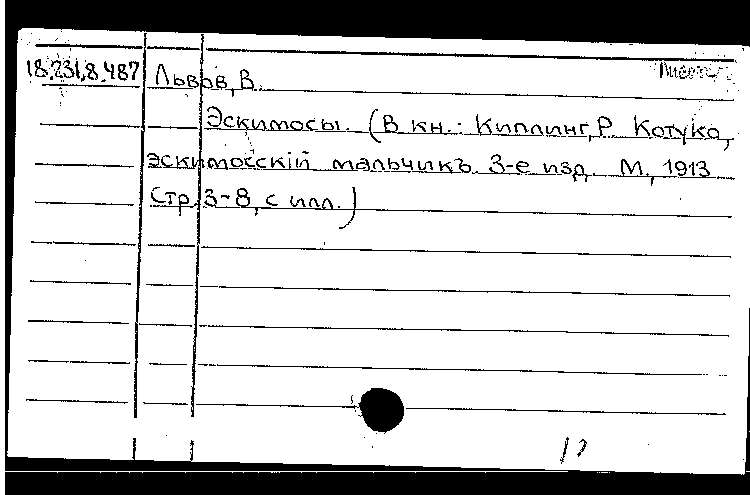 18.231.8.487 Львов, В.
Эскимосы. (В кн.: Киплинг, Р. Котуко,
эскимосскій мальчикъ. 3-е изд. М., 1913
Стр. 3-8, с илл.)